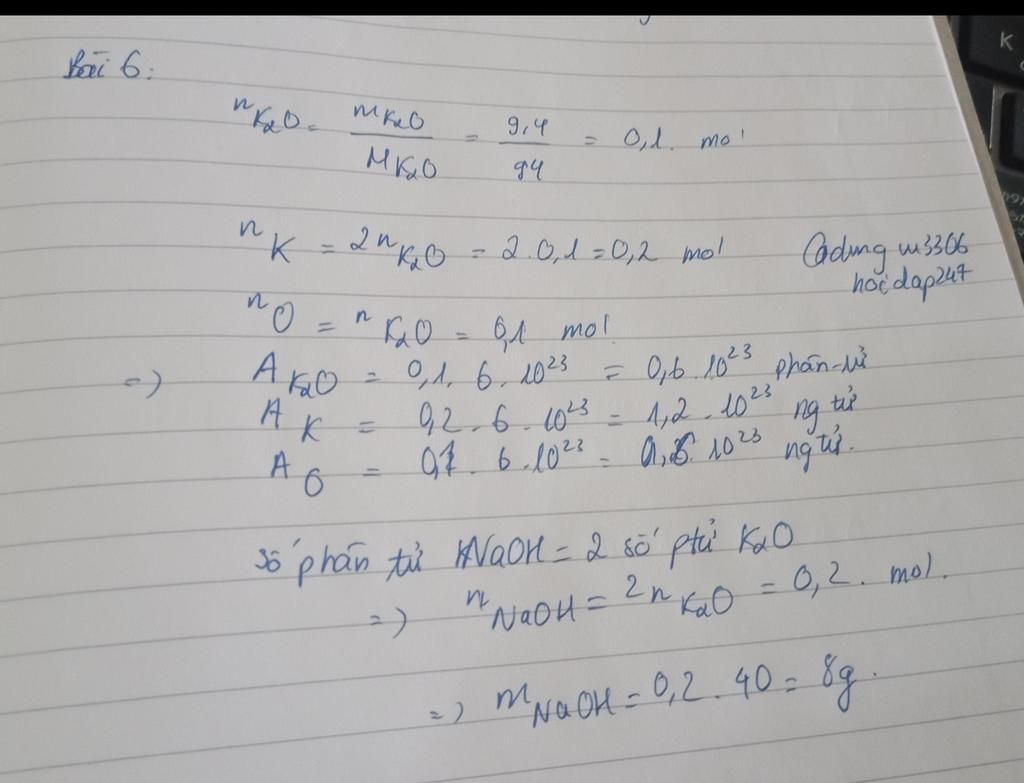 Bài 6:
nK2O = mK2O / MK2O = 9,4 / 94 = 0,1. mol
nK = 2nK2O = 2.0,1 = 0,2 mol
Cadung w3306
hoidap247
nO = nK2O = 0,1 mol
=) AK2O = 0,1. 6. 10^23 = 0,6. 10^23 phân tử
AK = 0,2. 6. 10^23 = 1,2. 10^23 ng tử
AO = 0,1. 6. 10^23 = 0,6. 10^23 ng tử.
Số phân tử NaOH = 2 số ptử K2O
=) nNaOH = 2nK2O = 0,2. mol.
=) mNaOH = 0,2. 40 = 8g.
K